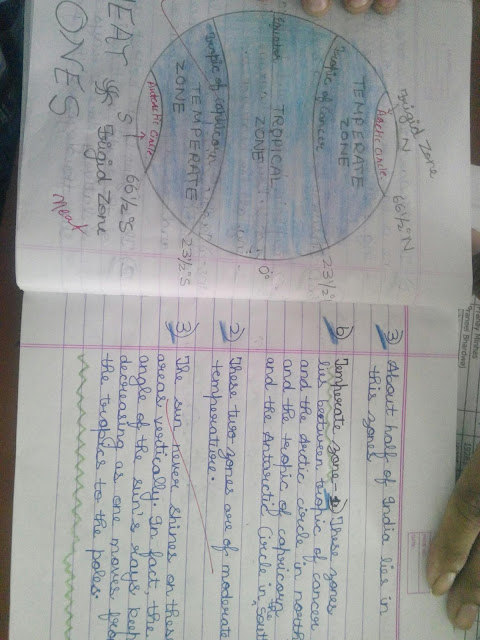 HEAT ZONES
Frigid Zone
N
66½°N
Arctic Circle
TEMPERATE
ZONE
Tropic of cancer
23½°
Equator
TROPICAL
ZONE
0°
Tropic of capricorn
23½°S
TEMPERATE
ZONE
Antarctic Circle
66½°S
S
Frigid Zone
Neat
3) About half of India lies in
this zones
b) Temperate zone - 1) These zones
lies between tropic of cancer
and the arctic circle in north
and the tropic of capricorn
and the Antarctic Circle in the South
2) These two zones are of moderate
temperature.
3) The sun never shines on these
areas vertically. In fact, the
angle of the sun's rays keep
decreasing as one moves from
the tropics to the poles.